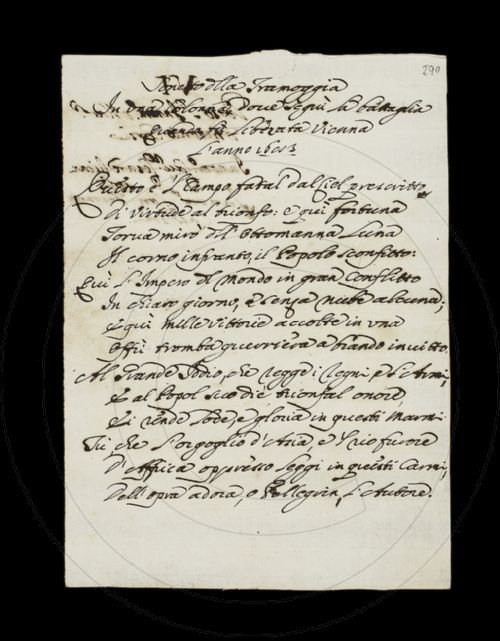 290
Sonetto della Tramoggia
In una Colonna dove seguì la battaglia
quando fu liberata Vienna
L'anno 1683
Questo è 'l Campo fatal dal Ciel prescritto
Di virtude al trionfo: e qui fortuna
Torva mirò dell'Ottomanna Luna
Il corno infranto, il Popolo sconfitto:
Quì l'Impero del Mondo in gran Conflitto
In chiaro giorno, e senza nube alcuna;
E quì mille vittorie accolte in una
Offrì tromba guerriera a brando invitto.
Al Grande Iddio, che regge i Regni, e l'Armi,
E al Popol suo diè trionfal onore,
Si rende lode, e gloria in questi Marmi
Tu, che l'orgoglio d'Asia, e 'l rio furore
D'Affrica oppresso leggi in questi Carmi,
Dell'opra adora, o Pellegrin, l'Autore.